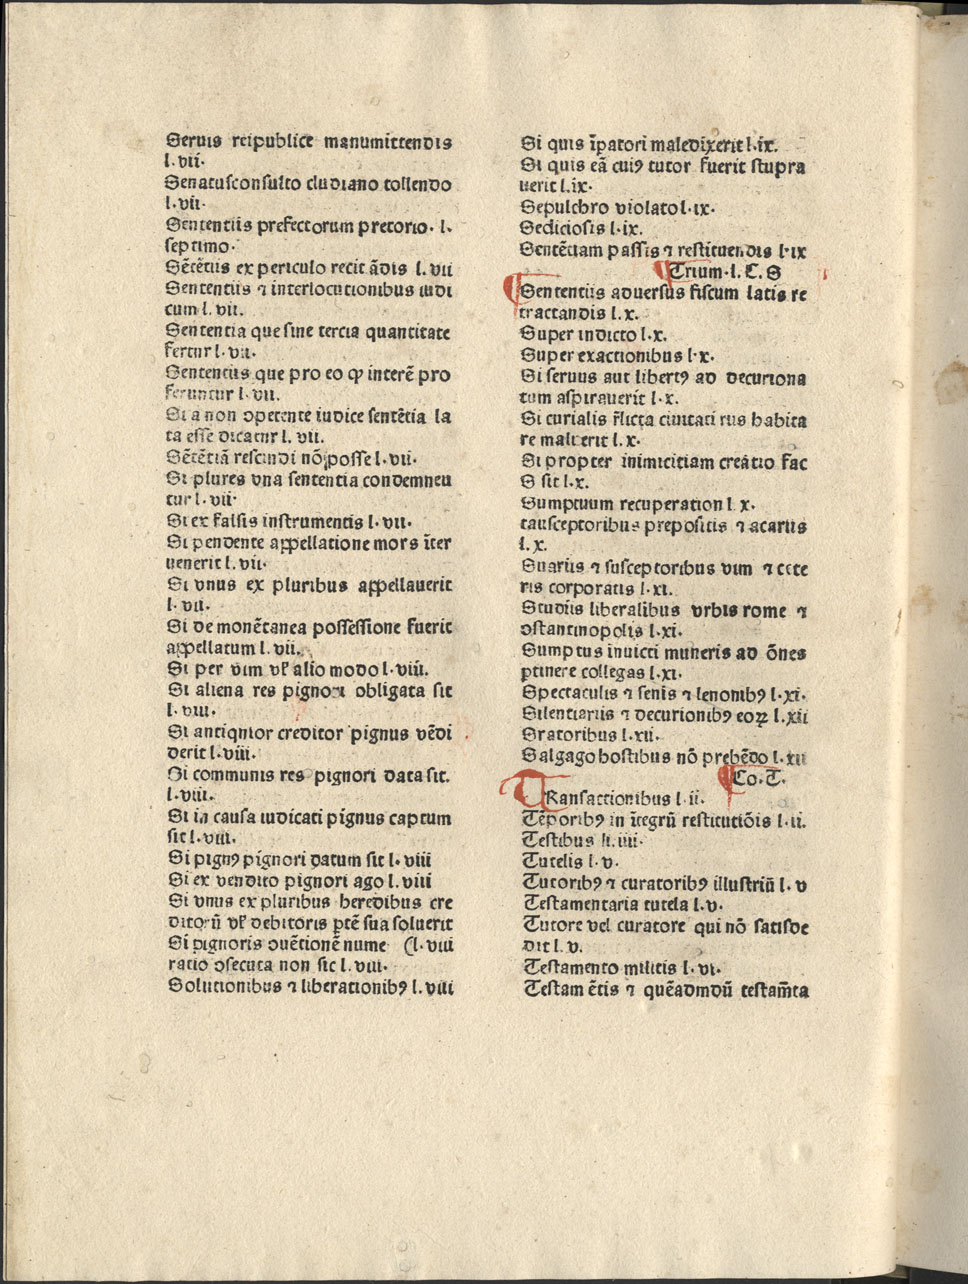 Seruis reipublice manumittendis
l. vii·
Senatusconsulto cludiano tollendo
l. vii·
Sententiis prefectorum pretorio· l.
septimo·
Sētētiis ex periculo recit ādis l. vii
Sententiis ⁊ interlocutionibus iudi
cum l. vii.
Sententia que sine tercia quantitate
fertur l. vii.
Sententiis que pro eo qͥ interē pro
feruntur l. vii.
Si a non opetente iudice sentētia la
ta esse dicatur l. vii.
Sētētiā rescindi nō posse l. vii·
Si plures vna sententia condemneu
tur l. vii·
Si ex falsis instrumentis l. vii.
Si pendente appellatione mors īter
uenerit l. vii·
Si vnus ex pluribus appellauerit
l. vii.
Si de monētanea possessione fuerit
appellatum l. vii.
Si per vim vl̕ alio modo l. viii.
Si aliena res pignori obligata sit
l. viii.
Si antiqnior creditor pignus vēdi
derit l. viii.
Si communis res pignori data sit.
l. viii.
Si in causa iudicati pignus captum
sit l. viii.
Si pignꝰ pignori datum sit l. viii
Si ex vendito pignori ago l. viii
Si vnus ex pluribus heredibus cre
ditorū vl̕ debitoris ptē sua soluerit
Si pignoris ↄuētionē nume (l. viii
ratio ↄsecuta non sit l. viii.
Solutionibus ⁊ liberationibꝰ l. viii
Si quis īpatori maledixerit l. ix.
Si quis eā cuiꝰ tutor fuerit stupra
uerit l. ix·
Sepulchro violato l. ix·
Sediciosis l. ix.
Sentētiam passis ⁊ restituendis l. ix
Trium· l. C. S
Sententiis aduersus fiscum latis re
tractandis l. x.
Super indicto l. x.
Super exactionibus l· x·
Si seruus aut libertꝰ ad decuriona
tum aspirauerit l. x.
Si curialis rlicta ciuitati rus habita
re maluerit l. x·
Si propter inimicitiam creatio fac
S sit l. x.
Sumptuum recuperation l. x.
tausceptoribus prepositis ⁊ acariis
l. x.
Suariis ⁊ susceptoribus vim ⁊ cete
ris corporatis l. xi.
Studiis liberalibus vrbis rome ⁊
ↄstantinopolis l. xi.
Sumptus inuicti muneris ad ōnes
ptinere collegas l. xi.
Spectaculis ⁊ senis ⁊ lenonibꝰ l. xi.
Silentiariis ⁊ decurionibꝰ eoꝝ l. xii
Sratoribus l. xii.
Salgago hostibus nō prebēdo l. xii
Co. T.
TRansactionibus l. ii.
Tēporibꝰ in ītegrū restitutiōis l. ii.
Testibus li. iiii·
Tutelis l. v.
Tutoribꝰ ⁊ curatoribꝰ illustriū l. v
Testamentaria tutela l. v.
Tutore vel curatore qui nō satisde
dit l. v.
Testamento militis l. vi.
Testam ētis ⁊ quēadmdū testam̄ta